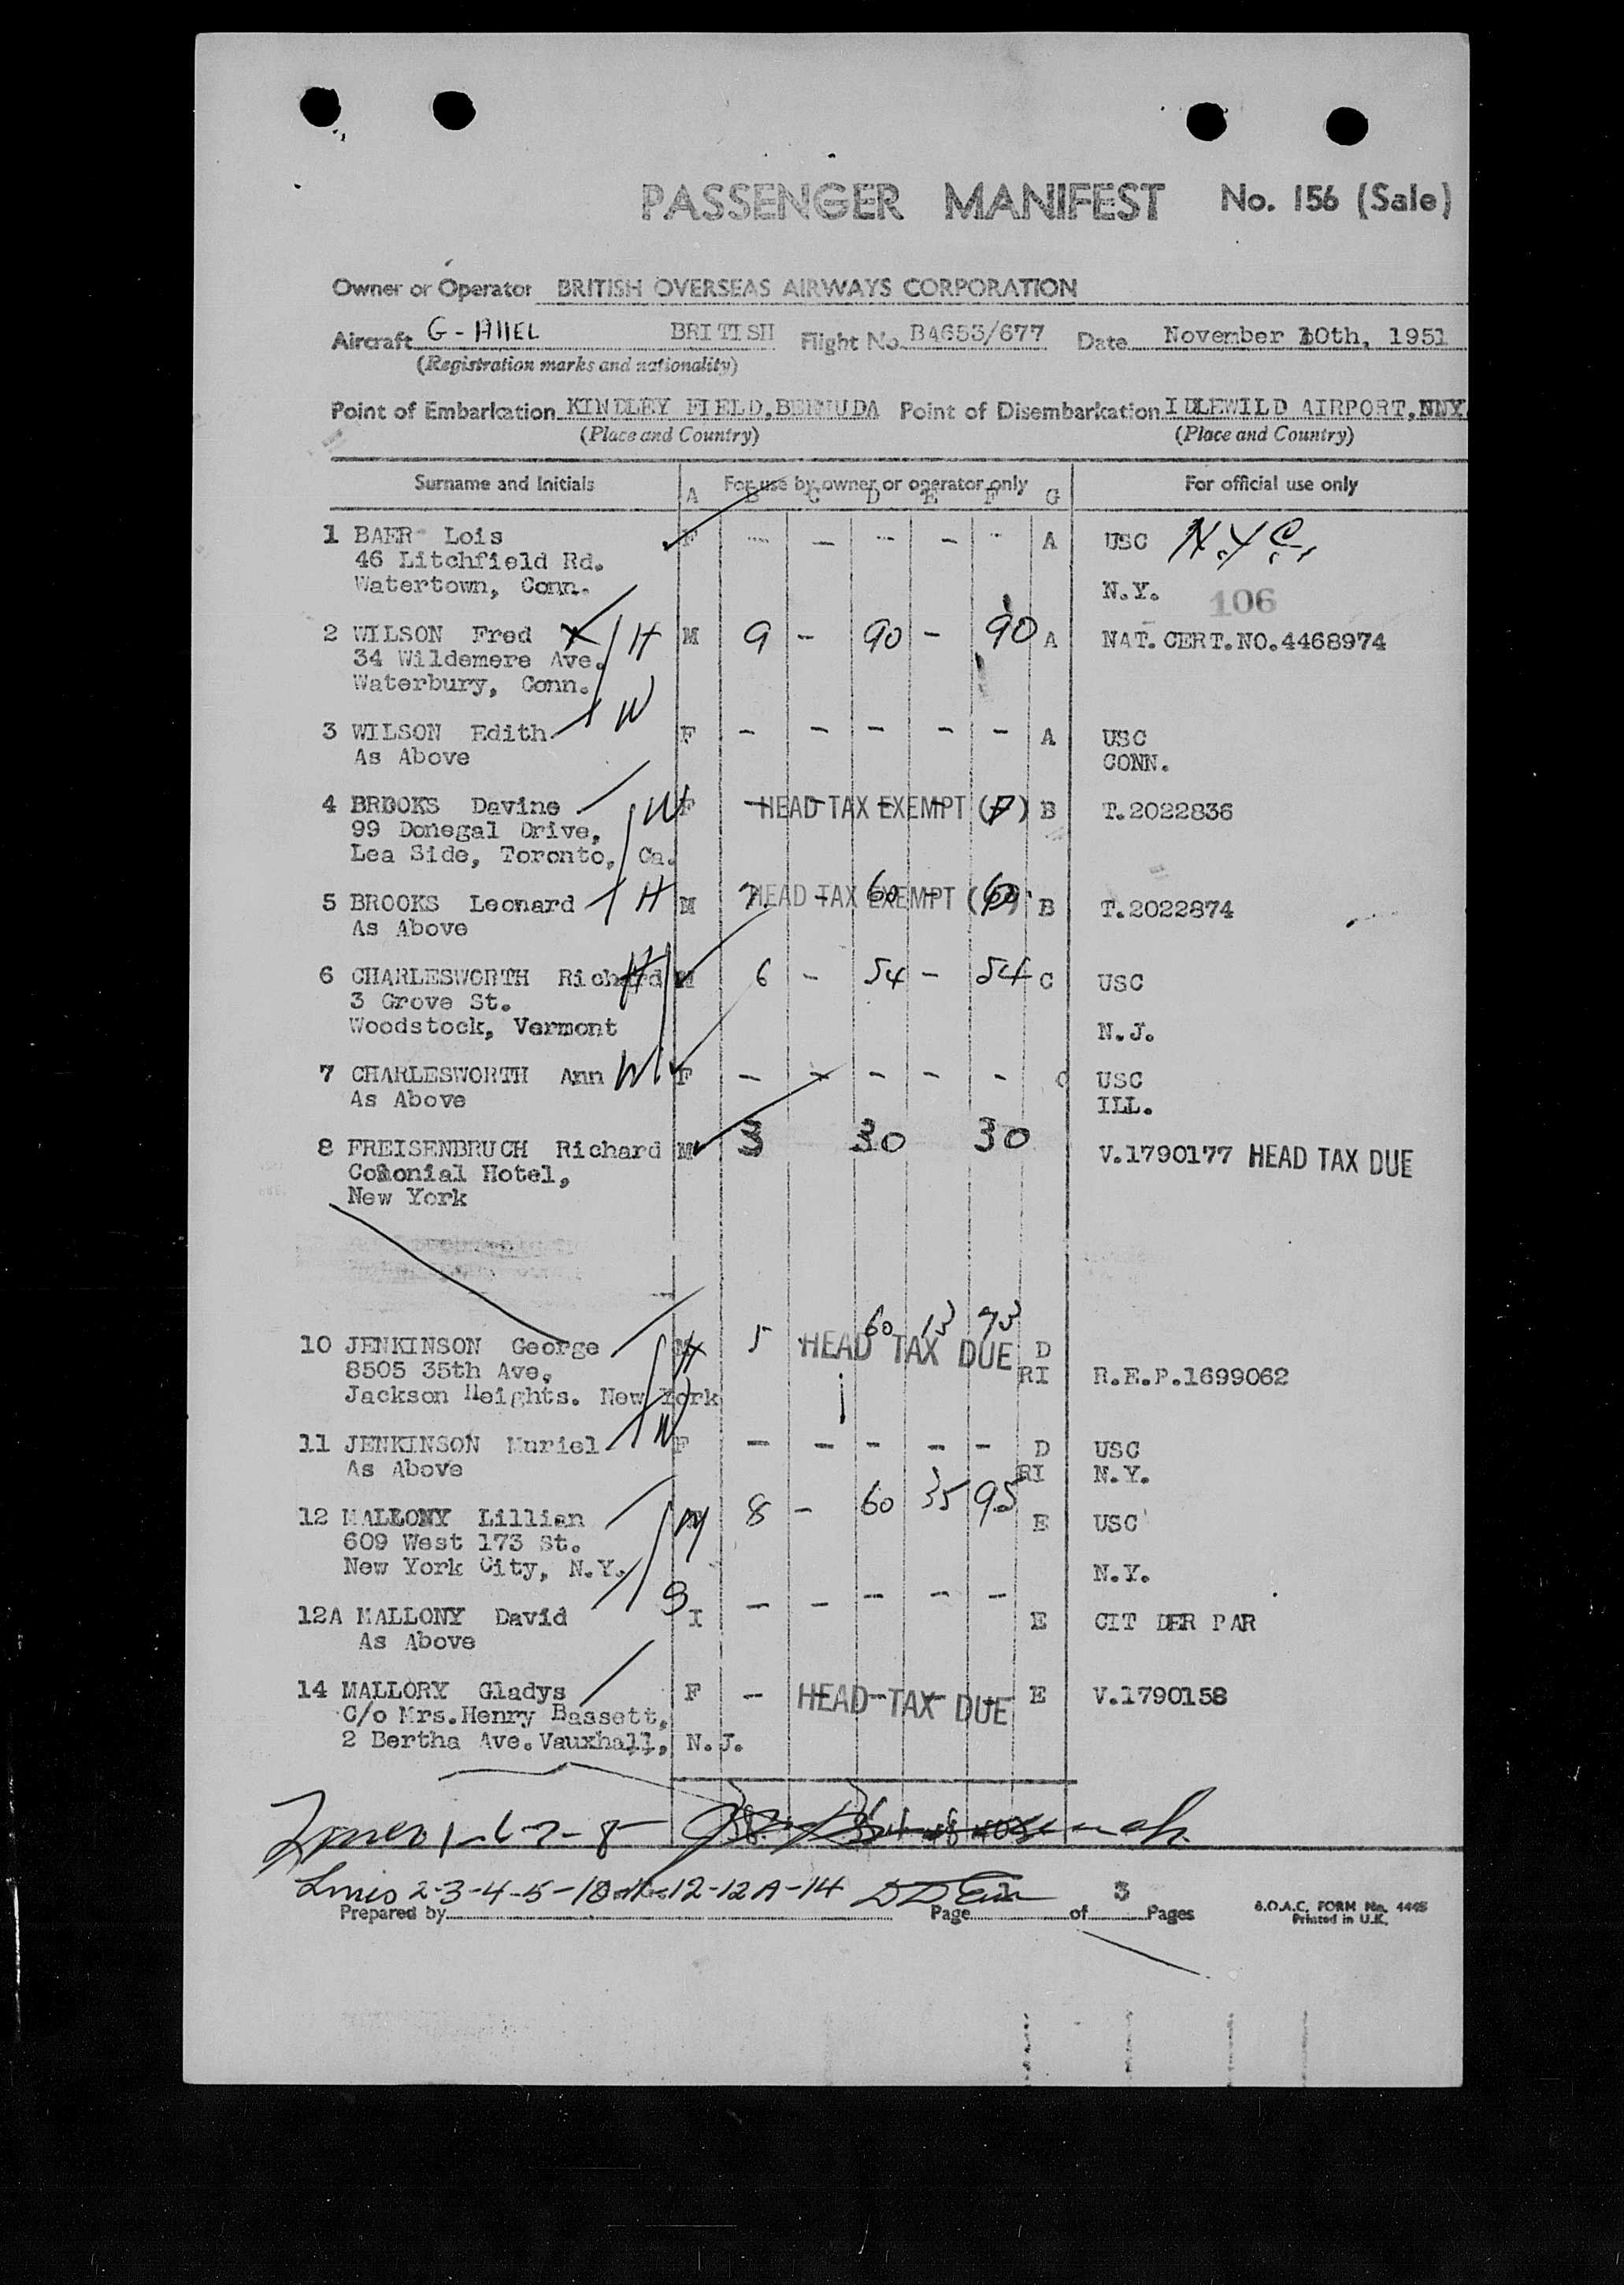 PASSENGER MANIFEST No. 156 (Sale)
Owner or Operator BRITISH OVERSEAS AIRWAYS CORPORATION
Aircraft G - BRITISH Flight No. B4653/677 Date November 10th, 1951
(Registration marks and nationality)
Point of Embarkation KINDLEY FIELD, BERMUDA Point of Disembarkation IDLEWILD AIRPORT, NNY
(Place and Country) (Place and Country)
Surname and Initials For use by owner or operator only For official use only
A B C D E F G
1 BAER Lois F - - - - - A USC N.Y.C.
46 Litchfield Rd.
Watertown, Conn. N.Y. 106
2 WILSON Fred H M 9 - 90 - 90 A NAT. CERT. NO. 4468974
34 Wildemere Ave.
Waterbury, Conn.
3 WILSON Edith W F - - - - - A USC
As Above CONN.
4 BROOKS Davine W F HEAD TAX EXEMPT ( ) B T.2022836
99 Donegal Drive,
Lea Side, Toronto, Ca.
5 BROOKS Leonard H M 7 HEAD TAX EXEMPT 60 - (60) B T.2022874
As Above
6 CHARLESWORTH Richard H M 6 - 54 - 54 C USC
3 Grove St.
Woodstock, Vermont N.J.
7 CHARLESWORTH Ann W F - - - - - C USC
As Above ILL.
8 FREISENBRUCH Richard M 3 30 30 V.1790177 HEAD TAX DUE
Colonial Hotel,
New York
10 JENKINSON George H 5 60 13 73 HEAD TAX DUE D
8505 35th Ave, RI R.E.P.1699062
Jackson Heights. New York
11 JENKINSON Muriel W F - - - - - D USC
As Above RI N.Y.
12 MALLONY Lillian M 8 - 60 35 95 E USC
609 West 173 St.
New York City, N.Y. N.Y.
12A MALLONY David S I - - - - - E CIT DER PAR
As Above
14 MALLORY Gladys F - HEAD TAX DUE E V.1790158
C/o Mrs. Henry Bassett,
2 Bertha Ave. Vauxhall, N.J.
1-6-7-8
Lines 2-3-4-5-10-11-12-12A-14
Prepared by Page of 3 Pages B.O.A.C. FORM No. 4445
Printed in U.K.